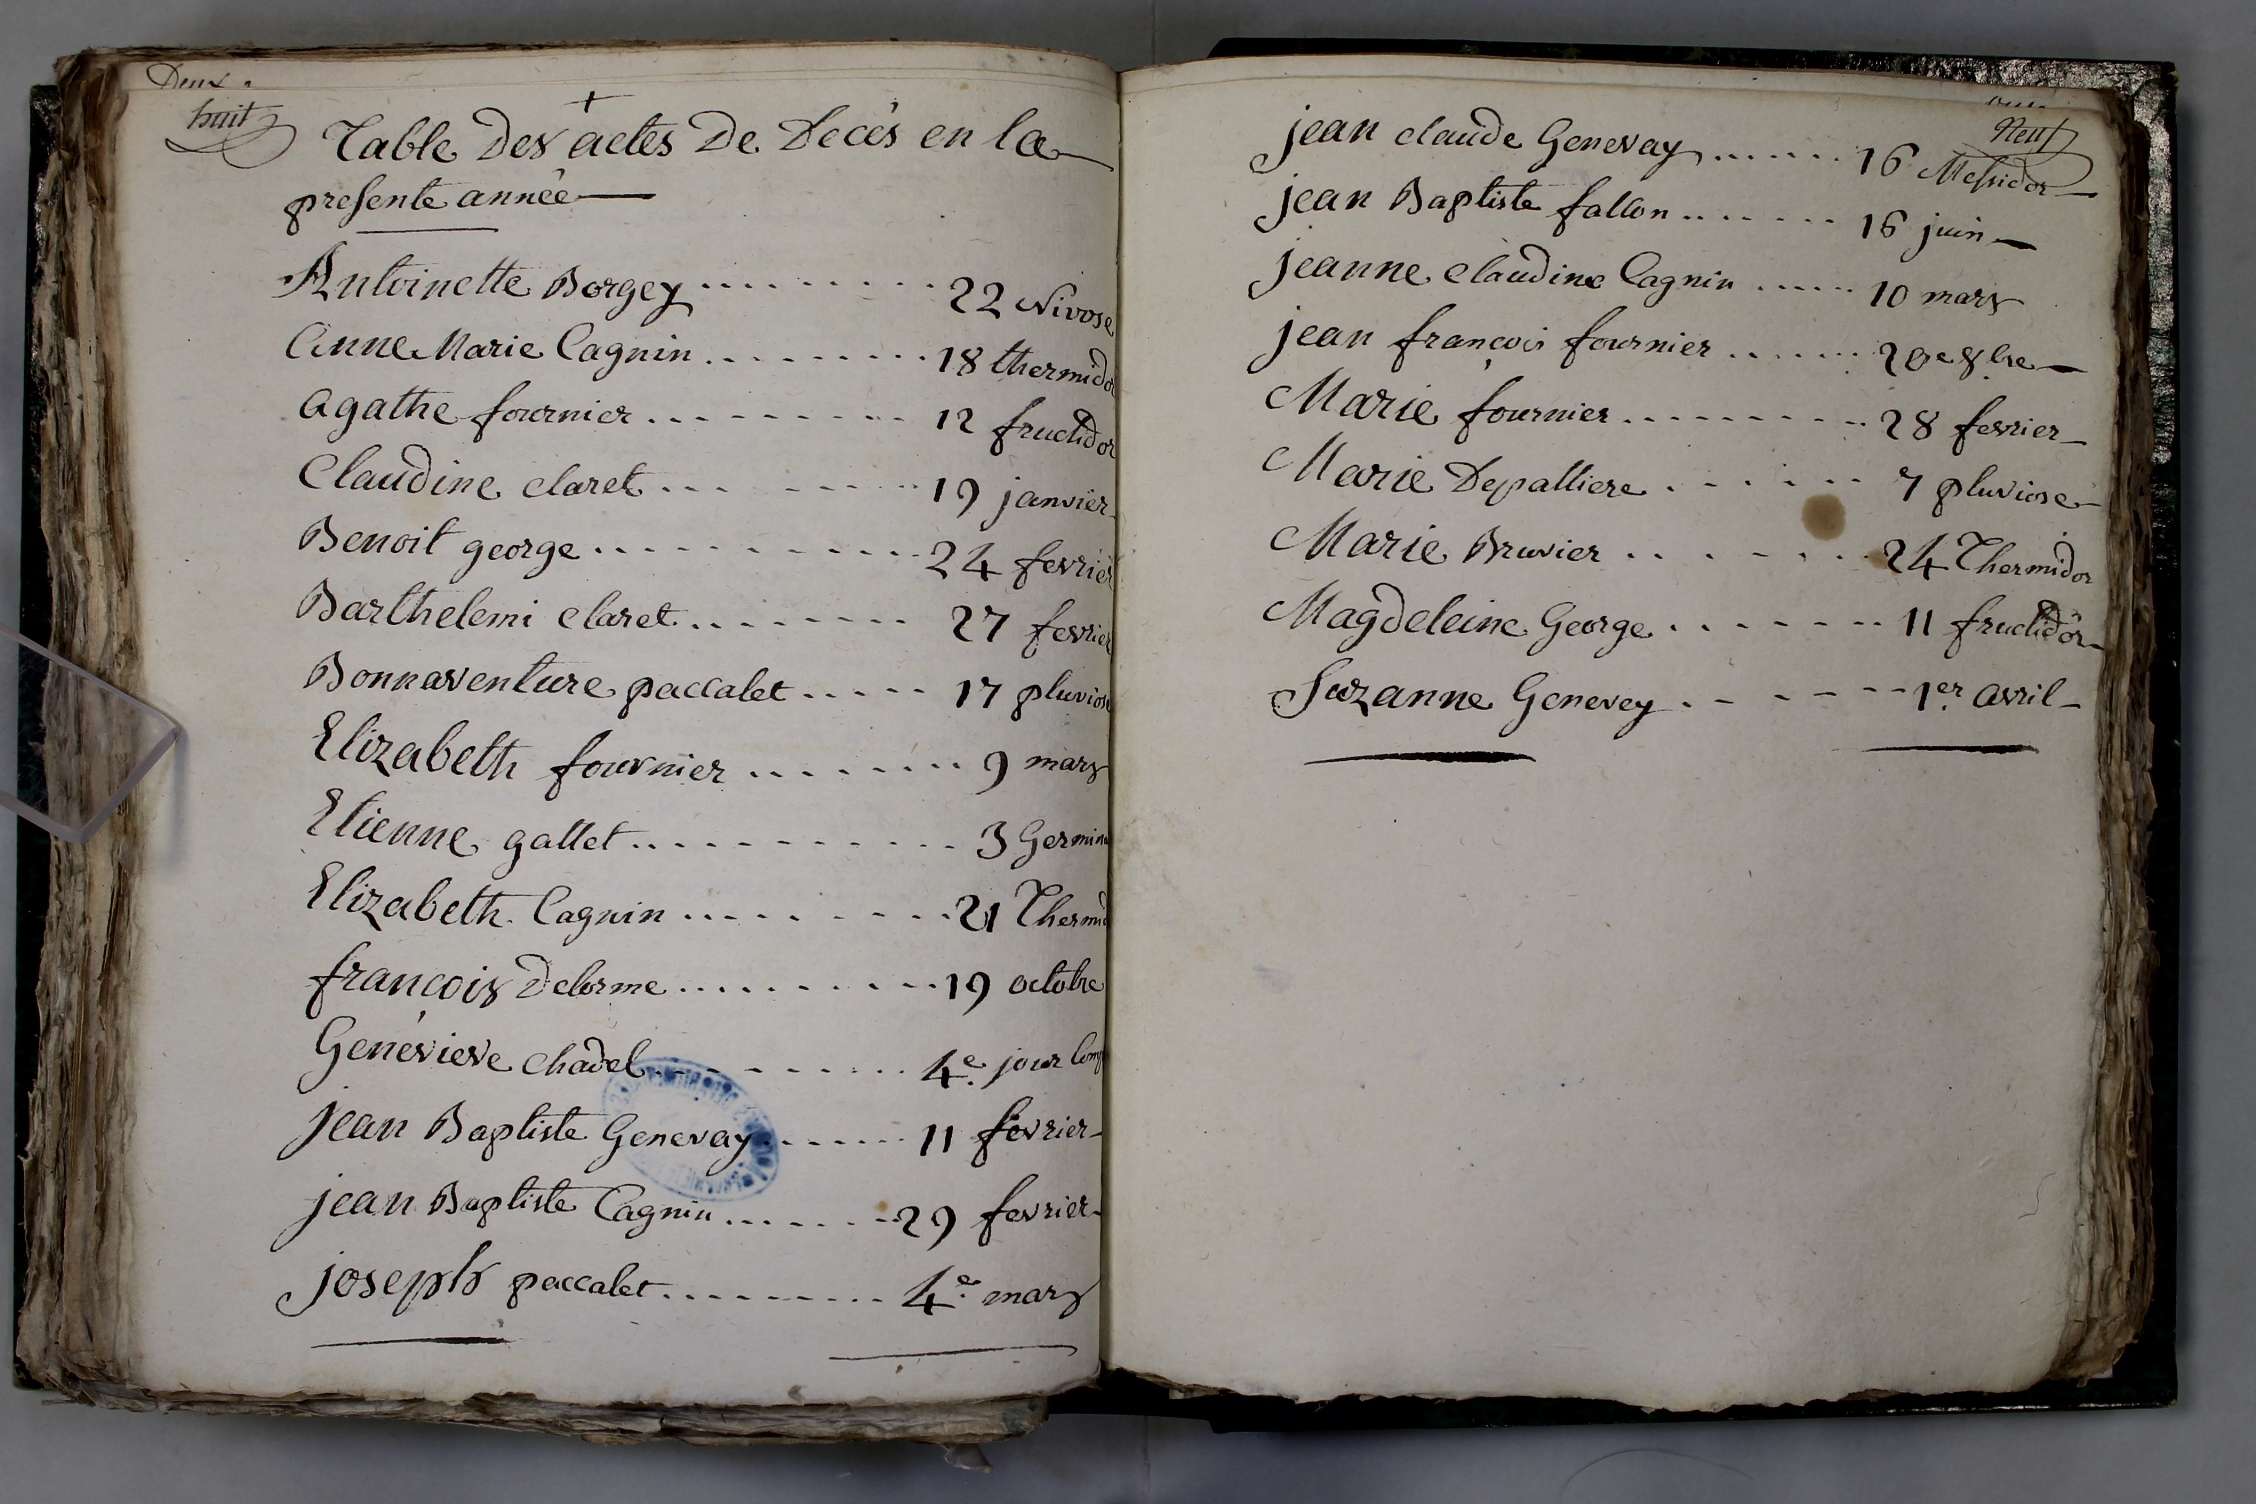 Deux
huit
Table Des actes De Decès en la
presente année
Antoinette Borgey ......... 22 Nivose
Anne Marie Cagnin ......... 18 thermido
Agathe fournier ......... 12 fructidor
Claudine claret ......... 19 janvier
Benoit george ......... 24 fevrier
Barthelemi claret ........ 27 fevrier
Bonnaventure paccalet ..... 17 pluviose
Elizabeth fournier ........ 9 mars
Etienne gallet ........... 3 Germina
Elizabeth Cagnin ......... 21 Thermid
françois Delorme ......... 19 octobre
Genévieve chadel ......... 4e. jour Comp
jean Baptiste Genevay ...... 11 fevrier
jean Baptiste Cagnin ....... 29 fevrier
joseph paccalet ......... 4e. mars
Neuf
jean claude Genevay ...... 16 Messidor
jean Baptiste fallon ....... 16 juin
jeanne claudine Cagnin ..... 10 mars
jean françois fournier ...... 20e 8.bre
Marie fournier ......... 28 fevrier
Marie Depalliere ...... 7 pluviose
Marie Bruvier ....... 24 Thermidor
Magdeleine George ....... 11 fructidor
Suzanne Genevey ...... 1er. avril